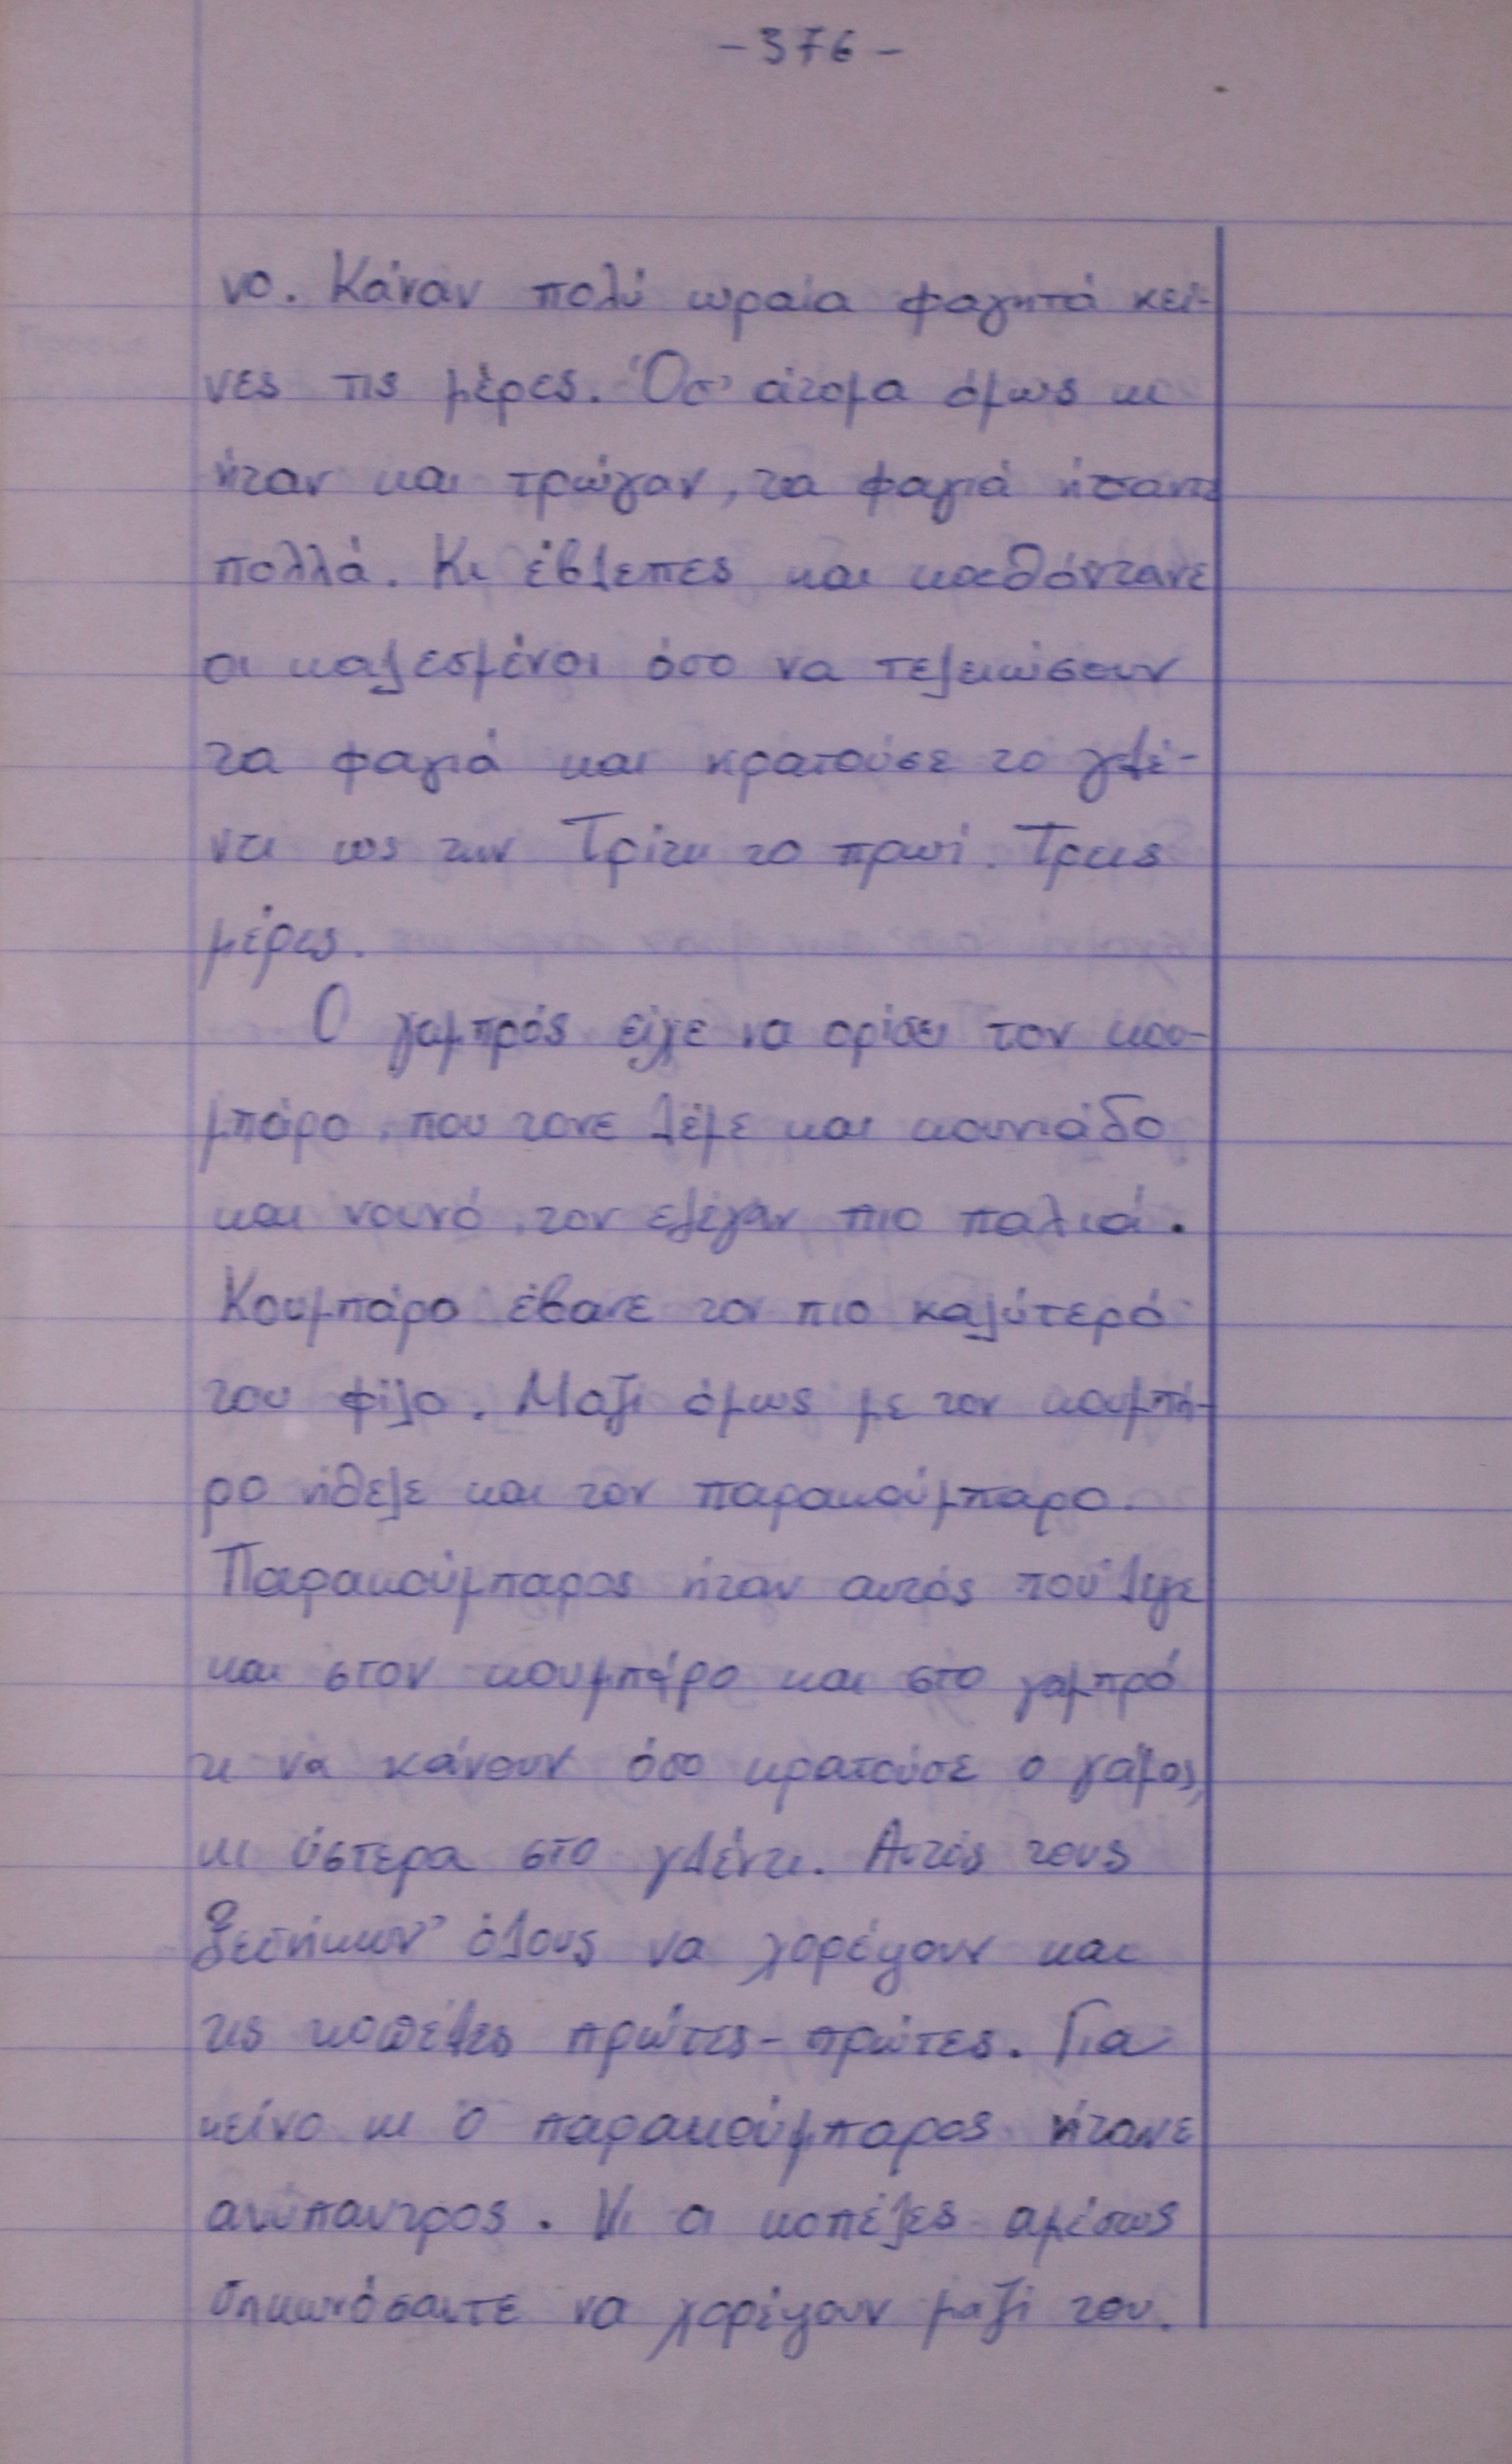 -376-
νο. Κάναν πολύ ωραία φαγητά κεί-
νες τις μέρες. Όσ' άτομα όμως κι
ήταν και τρώγαν, τα φαγιά ήσαντε
πολλά. Κι έβλεπες και καθόντανε
οι καλεσμένοι όσο να τελειώσουν
τα φαγιά και κρατούσε το γλέ-
ντι ως την Τρίτη το πρωί. Τρεις
μέρες.
Ο γαμπρός είχε να ορίσει τον κου-
μπάρο, που τονε λέμε και κουνιάδο
και νουνό, τον ελέγαν πιο παλιά.
Κουμπάρο έβανε τον πιο καλύτερό
του φίλο. Μαζί όμως με τον κουμπά-
ρο ήθελε και τον παρακούμπαρο.
Παρακούμπαρος ήταν αυτός πού 'λεγε
και στον κουμπάρο και στο γαμπρό
τι να κάνουν όσο κρατούσε ο γάμος,
κι ύστερα στο γλέντι. Αυτός τους
ξεσήκων' όλους να χορέψουν και
τις κοπέλες πρώτες-πρώτες. Για
κείνο κι ο παρακούμπαρος ήτανε
ανύπαντρος. Κι οι κοπέλες αμέσως
σηκωνόσαντε να χορέψουν μαζί του.